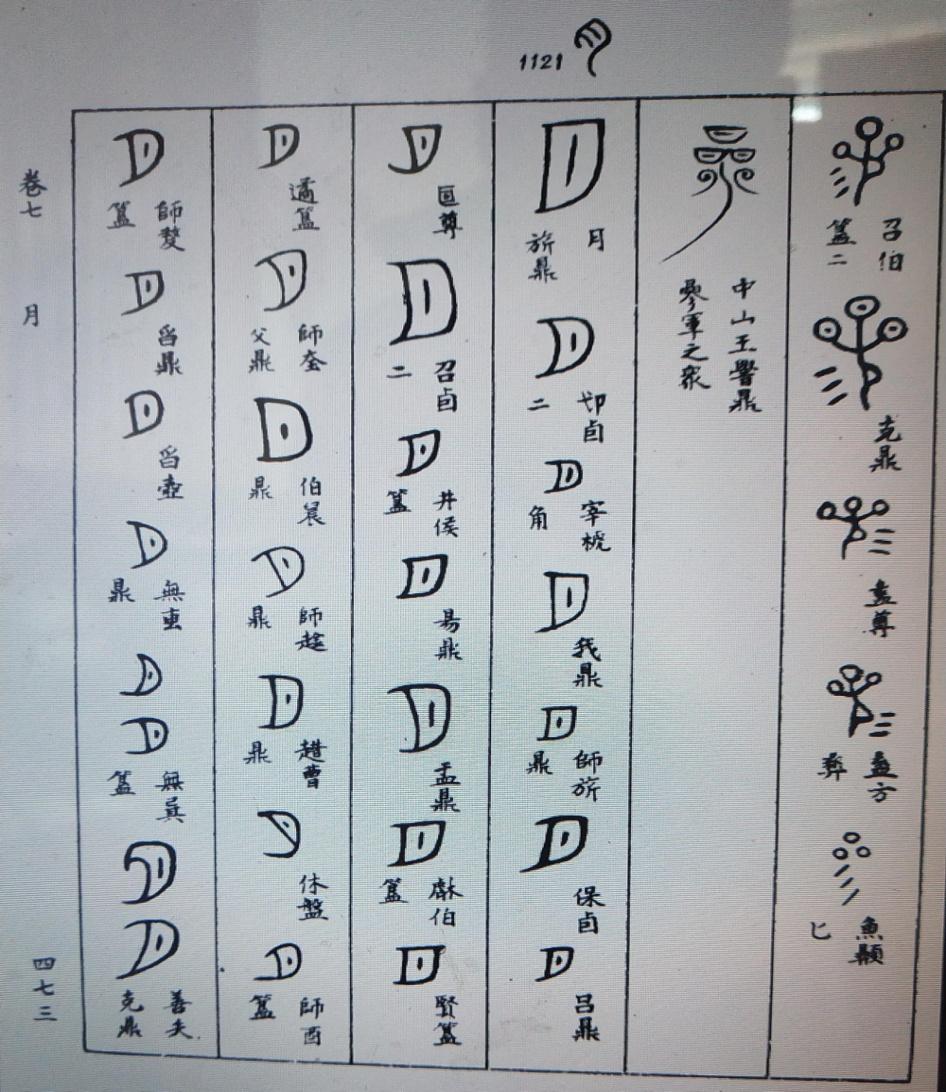 1121
召伯
簋二
克鼎
盠尊
盠方
彝
魚顛
匕
中山王鼎
參軍之眾
月
旅鼎
卣
二
宰椃
角
我鼎
師旅
鼎
保卣
呂鼎
尊
召卣
二
井侯
簋
易鼎
盂鼎
伯
簋
賢簋
遹簋
師
父鼎
伯晨
鼎
師趛
鼎
趞曹
鼎
休盤
師酉
簋
師
簋
舀鼎
舀壺
無叀
鼎
無㠱
簋
善夫
克鼎
卷七
月
四七三